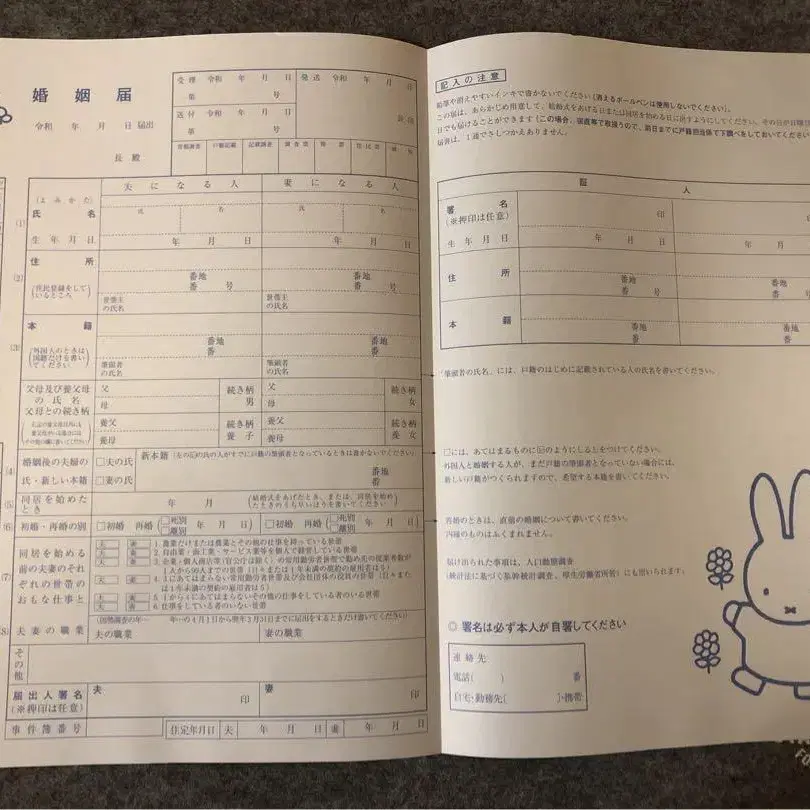 婚姻届
令和 年 月 日 届出
長 殿
受理 令和 年 月 日
第 号
送付 令和 年 月 日
第 号
発送 令和 年 月 日
書類調査 戸籍記載 記載調査 調査票 附票 住民票 通知
夫になる人 妻になる人
(1)
氏名
氏 名 氏 名
生年月日
年 月 日 年 月 日
(2)
住所
(住民登録をして
いるところ)
番地
番 号
番地
番 号
世帯主
の氏名
世帯主
の氏名
(3)
本籍
(外国人のときは
国籍だけを書い
てください)
番地
番
番地
番
筆頭者
の氏名
筆頭者
の氏名
父母及び養父母
の氏名
父母との続き柄
父 続き柄
母 男
父 続き柄
母 女
養父 続き柄
養母 養子
養父 続き柄
養母 養女
(4)
婚姻後の夫婦の
氏・新しい本籍
□夫の氏
□妻の氏
新本籍(左の☑の氏の人がすでに戸籍の筆頭者となっているときは書かないでください)
番地
番
(5)
同居を始めた
とき
年 月
(結婚式をあげたとき、または、同居を始め
たときのうち早いほうを書いてください)
(6)
初婚・再婚の別
□初婚 再婚(□死別 □離別 年 月 日)
□初婚 再婚(□死別 □離別 年 月 日)
(7)
同居を始める
前の夫妻のそ
れぞれの世帯の
おもな仕事と
夫 妻 1. 農業だけまたは農業とその他の仕事を持っている世帯
夫 妻 2. 自由業・商工業・サービス業等を個人で経営している世帯
夫 妻 3. 企業・個人商店等(官公庁は除く)の常用勤労者世帯で勤め先の従業者数が
1人から99人までの世帯(日々または1年未満の契約の雇用者は5)
夫 妻 4. 3にあてはまらない常用勤労者世帯及び会社団体の役員の世帯(日々また
は1年未満の契約の雇用者は5)
夫 妻 5. 1から4にあてはまらないその他の仕事をしている者のいる世帯
夫 妻 6. 仕事をしている者のいない世帯
(8)
夫妻の職業
(国勢調査の年… 年…の4月1日から翌年3月31日までに届出をするときだけ書いてください)
夫の職業 妻の職業
その他
届出人署名
(※押印は任意)
夫 印 妻 印
事件簿番号
住定年月日 夫 年 月 日 妻 年 月 日
記入の注意
鉛筆や消えやすいインキで書かないでください(消えるボールペンは使用しないでください)。
この届は、あらかじめ用意して、結婚式をあげる日または同居を始める日に出すようにしてください。その日が日曜日
日でも届けることができます(この場合、宿直等で取扱うので、前日までに戸籍担当係で下調べをしておいてください
届書は、1通でさしつかえありません。
証人
署名
(※押印は任意)
印
生年月日
年 月 日 年 月
住所
番地
番 号
番地
番
本籍
番地
番
番地
番
「筆頭者の氏名」には、戸籍のはじめに記載されている人の氏名を書いてください。
□には、あてはまるものに☑のようにしるしをつけてください。
外国人と婚姻する人が、まだ戸籍の筆頭者となっていない場合には、
新しい戸籍がつくられますので、希望する本籍を書いてください。
再婚のときは、直前の婚姻について書いてください。
内縁のものはふくまれません。
届け出られた事項は、人口動態調査
(統計法に基づく基幹統計調査、厚生労働省所管)にも用いられます。
◎署名は必ず本人が自署してください
連絡先
電話( ) 番
自宅・勤務先[ ]・携帯